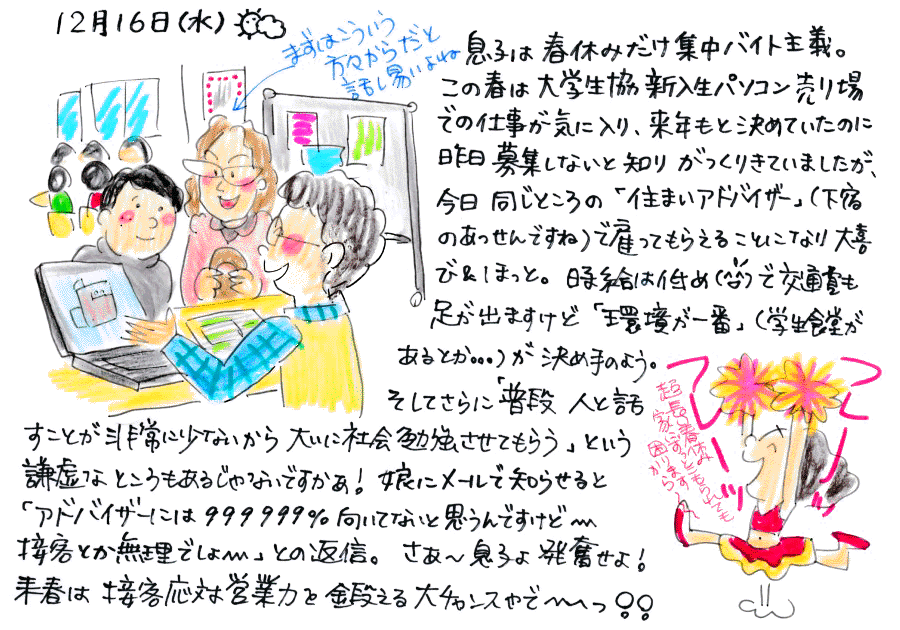 12月16日(水)
まずはこういう
方々からだと
話し易いよね
息子は春休みだけ集中バイト主義。
この春は大学生協新入生パソコン売り場
での仕事が気に入り、来年もと決めていたのに
昨日募集しないと知りがっくりきていましたが、
今日同じところの「住まいアドバイザー」(下宿
のあっせんですね)で雇ってもらえることになり大喜
び&ほっと。時給は低め(^^)で交通費も
足が出ますけど「環境が一番」(学生食堂が
あるとか…)が決め手のよう。
そしてさらに「普段人と話
すことが非常に少ないから大いに社会勉強させてもらう」という
謙虚なところもあるじゃないですかぁ!娘にメールで知らせると
「アドバイザーには999999%向いてないと思うんですけど〜
接客とか無理でしょ〜」との返信。さあ〜息子よ発奮せよ!
来春は接客応対営業力を鍛える大チャンスやで〜〜っ!!
フレーッ
フレーッ
超長い春休み
家にずっといてもらっても
困りますから〜